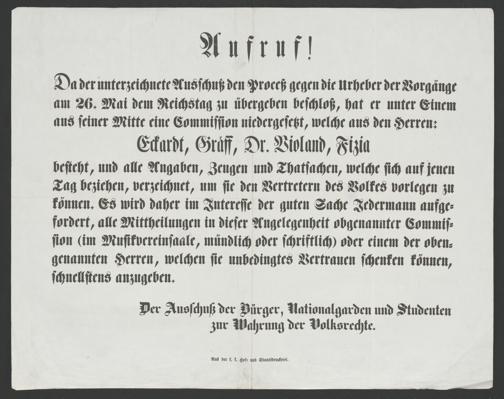 Aufruf!
Da der unterzeichnete Ausschuß den Proceß gegen die Urheber der Vorgänge
am 26. Mai dem Reichstag zu übergeben beschloß, hat er unter Einem
aus seiner Mitte eine Commission niedergesetzt, welche aus den Herren:
Eckardt, Gräff, Dr. Violand, Fizia
besteht, und alle Angaben, Zeugen und Thatsachen, welche sich auf jenen
Tag beziehen, verzeichnet, um sie den Vertretern des Volkes vorlegen zu
können. Es wird daher im Interesse der guten Sache Jedermann aufge-
fordert, alle Mittheilungen in dieser Angelegenheit obgenannter Commis-
sion (im Musikvereinsaale, mündlich oder schriftlich) oder einem der oben-
genannten Herren, welchen sie unbedingtes Vertrauen schenken können,
schnellstens anzugeben.
Der Ausschuß der Bürger, Nationalgarden und Studenten
zur Wahrung der Volksrechte.
Aus der k. k. Hof- und Staatsdruckerei.